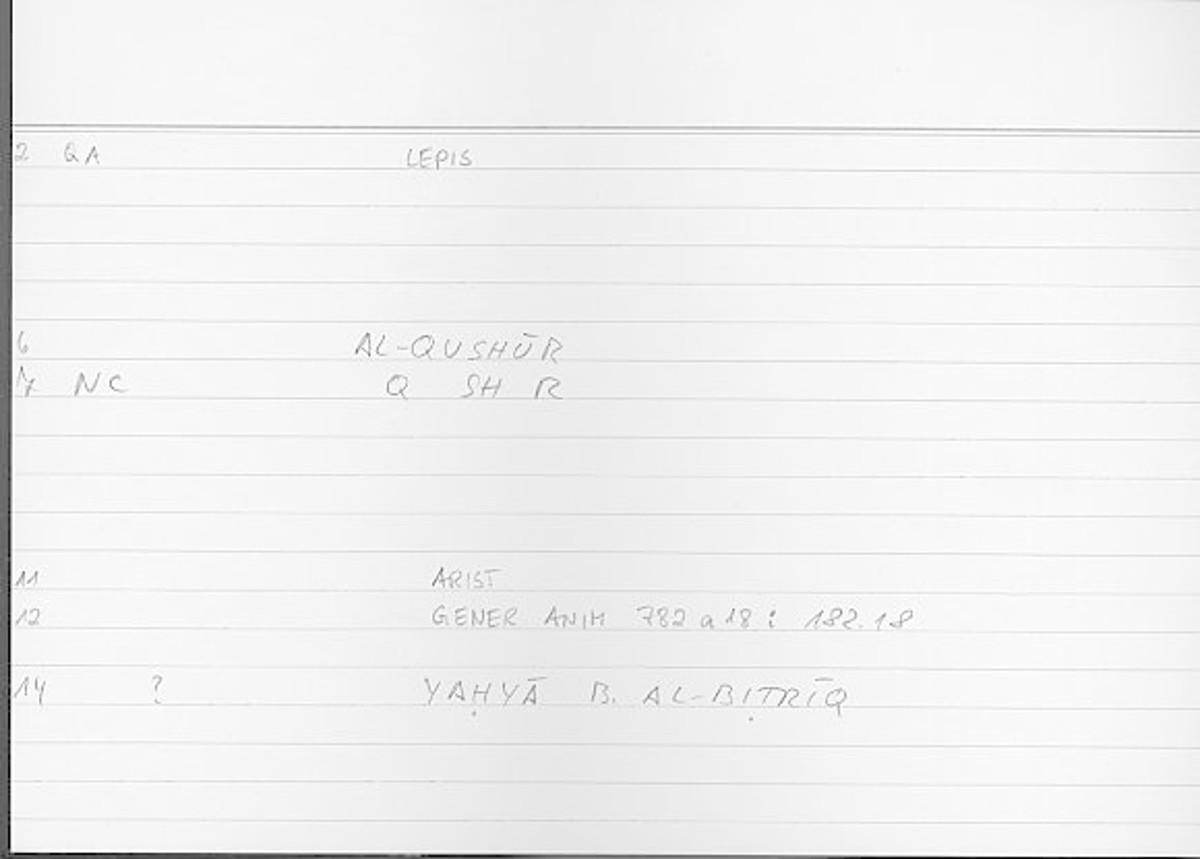 2 QA LEPIS
6 AL-QUSHŪR
7 NC Q SH R
11 ARIST
12 GENER ANIM 782 a 18 : 182.18
14 ? YAḤYĀ B. AL-BIṬRĪQ